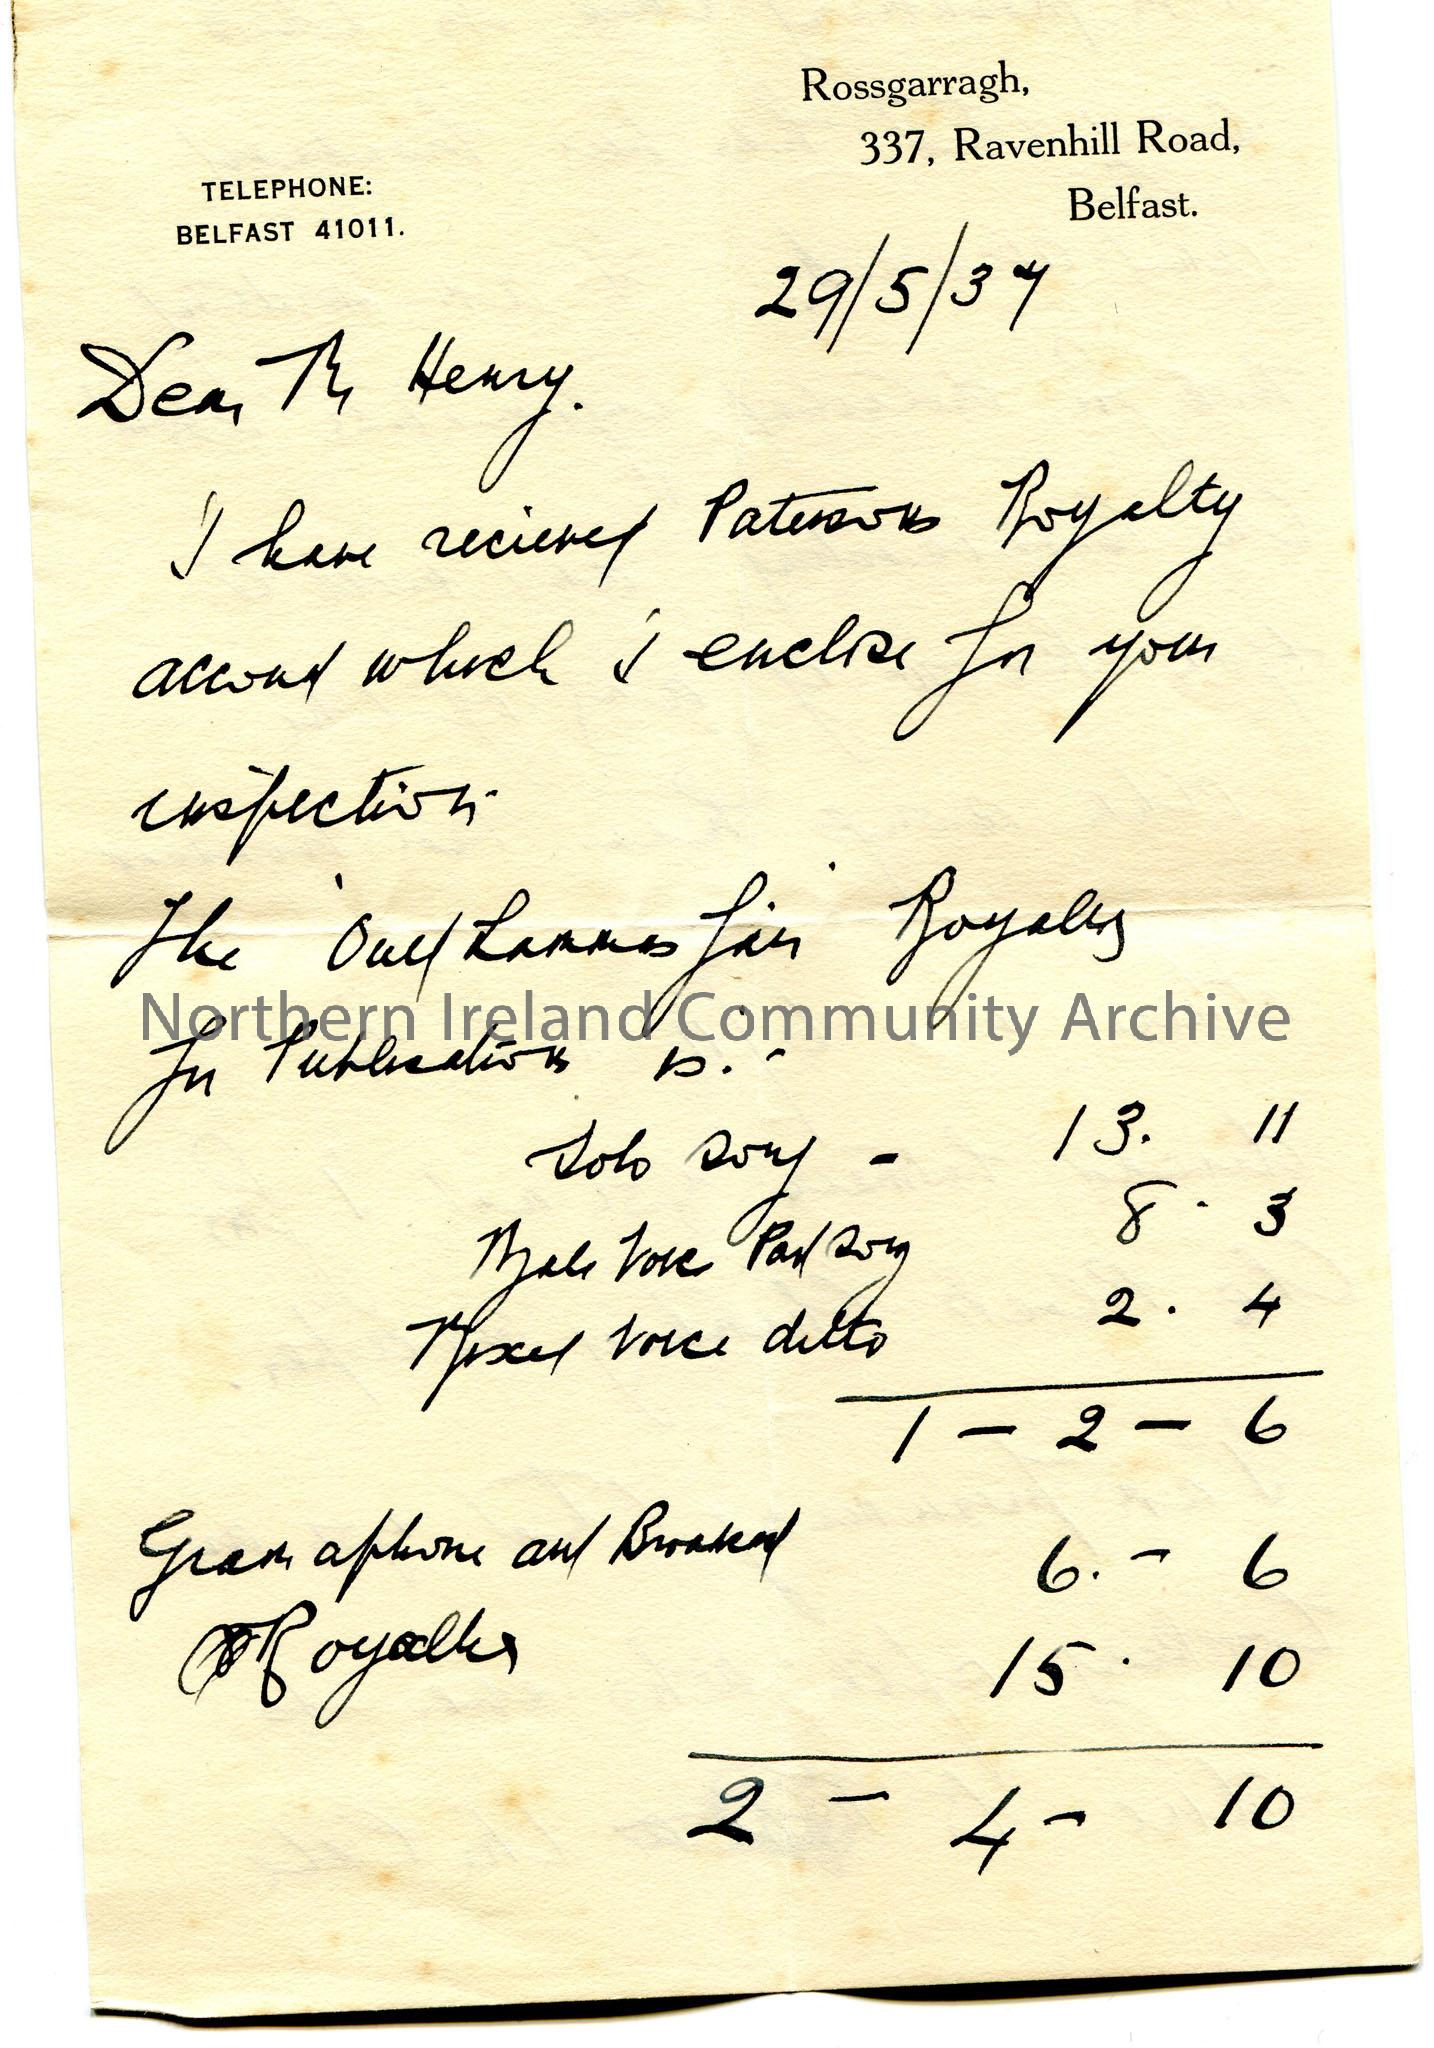 Rossgarragh,
337, Ravenhill Road,
Belfast.
TELEPHONE:
BELFAST 41011.
29/5/37
Dear Mr Henry.
I have recieved Patersons Royalty
account which I enclose for your
inspection
The 'Ould Lammas Fair' Royalties
Northern Ireland Community Archive
for Publications is. -
Solo Song - 13. 11
Male Voice Part Song 8 . 3
Mixed Voice ditto 2 . 4
1 - 2 - 6
Gramaphone and Broadcast 6. - 6
Royalties 15 . 10
2 - 4 - 10